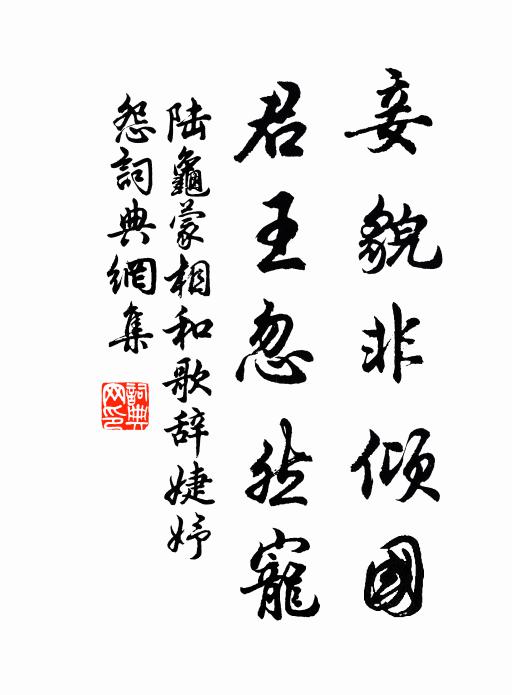 妾貌非倾國
君王忽然寵
陆龜蒙相和歌辞婕妤
怨詞典網集
詞典網印